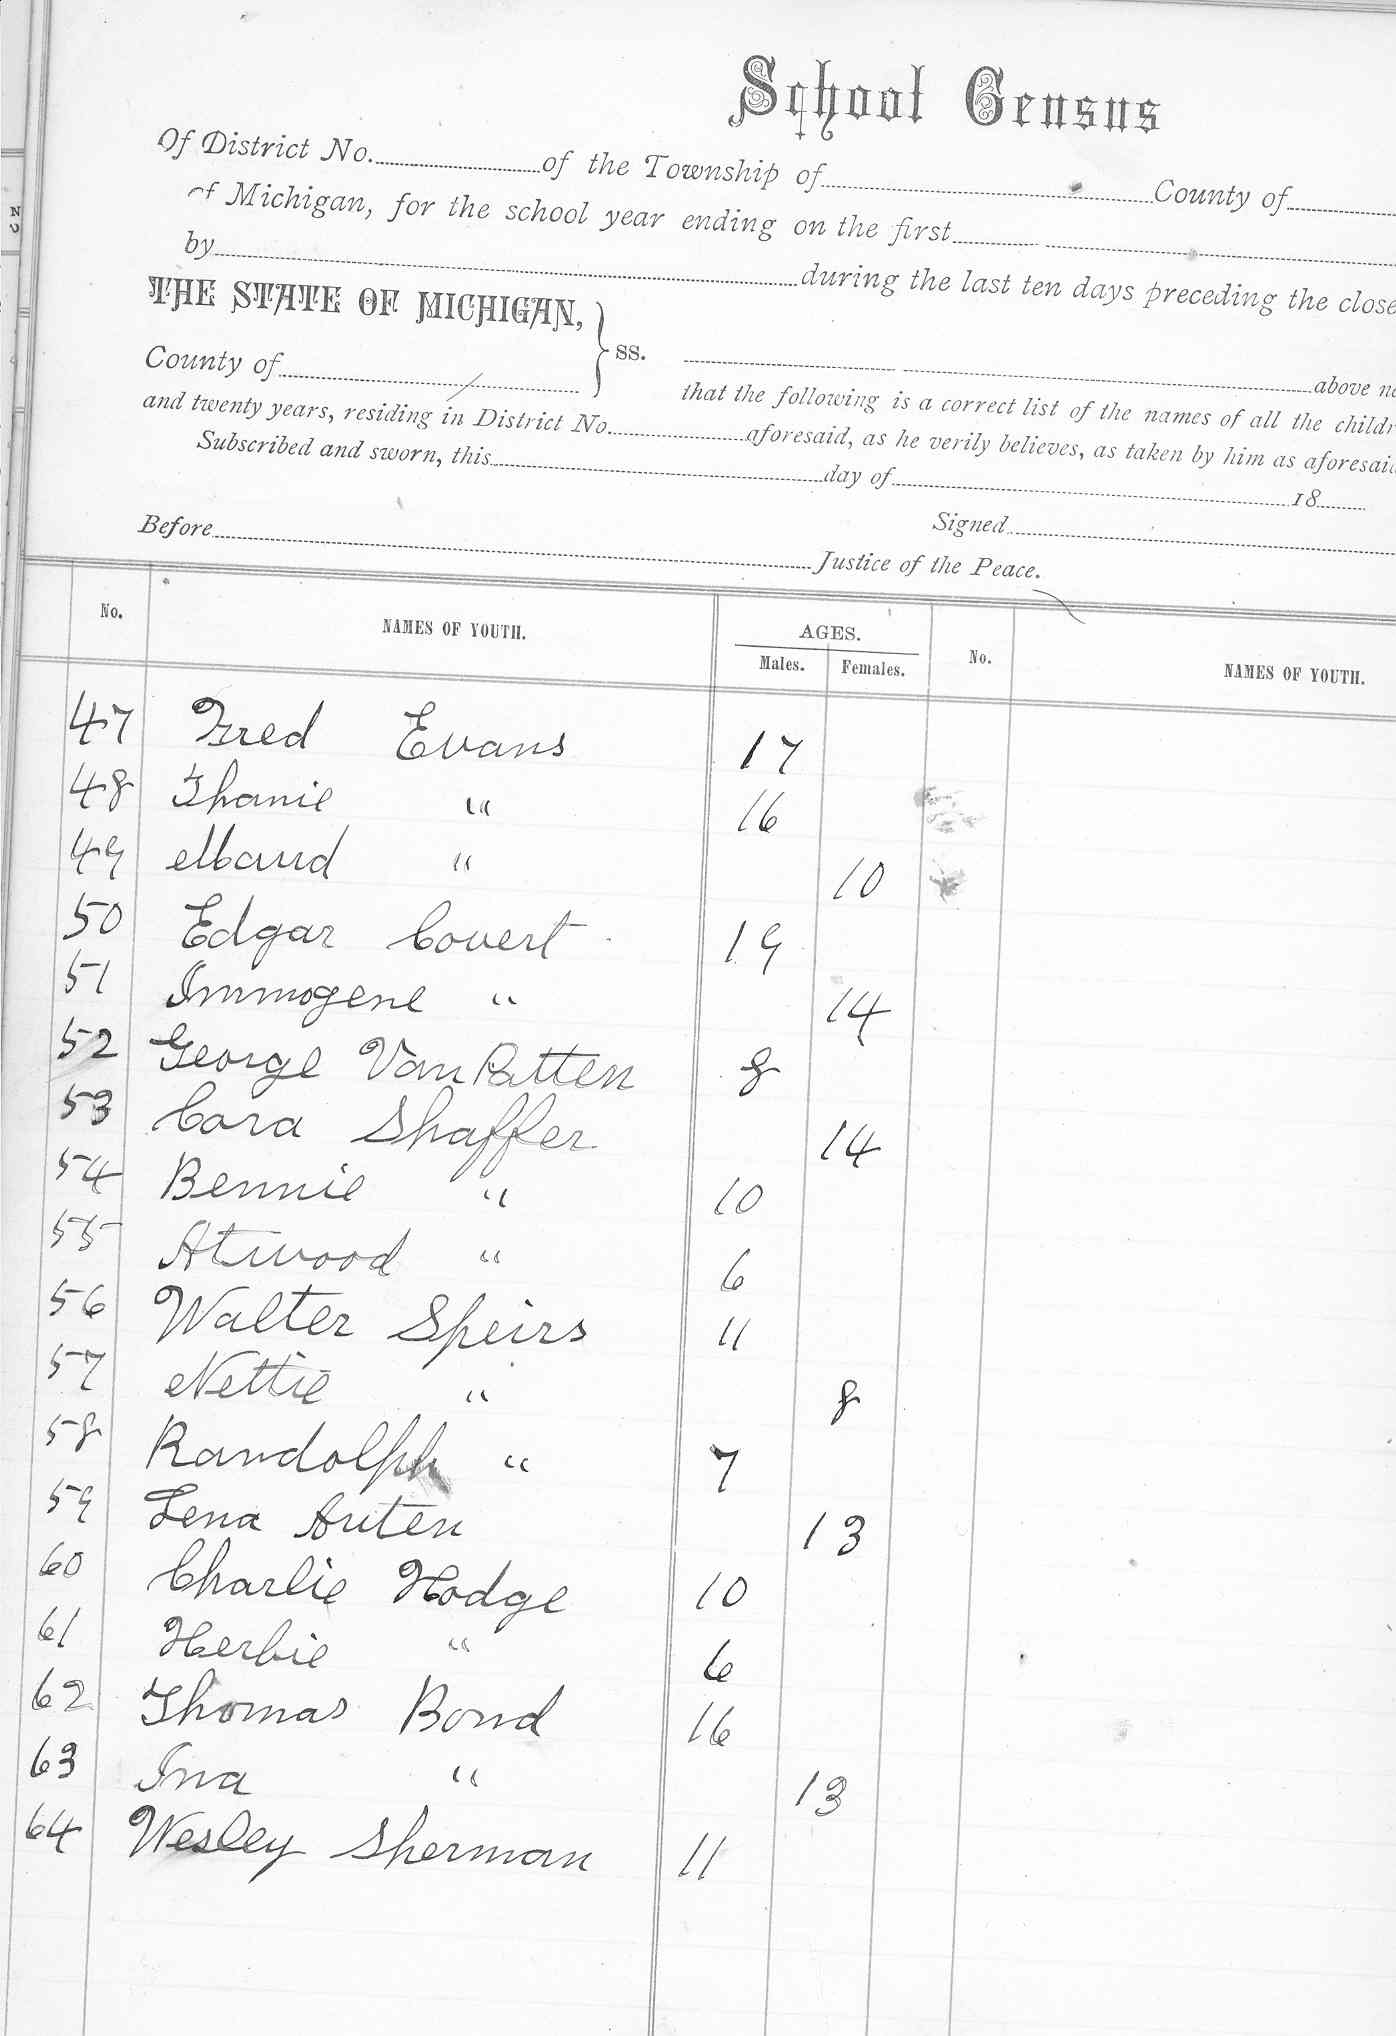 School Census
Of District No. of the Township of County of
of Michigan, for the school year ending on the first
by during the last ten days preceding the close
THE STATE OF MICHIGAN,
County of } ss. above na
that the following is a correct list of the names of all the childr
and twenty years, residing in District No. aforesaid, as he verily believes, as taken by him as aforesaid
Subscribed and sworn, this day of 18
Before Signed
Justice of the Peace.
No. NAMES OF YOUTH. AGES. No. NAMES OF YOUTH.
Males. Females.
47 Fred Evans 17
48 Thanie " 16
49 Maud " 10
50 Edgar Covert 19
51 Immogene " 14
52 George Van Patten 8
53 Cora Shaffer 14
54 Bennie " 10
55 Atwood " 6
56 Walter Speirs 11
57 Nettie " 8
58 Randolph " 7
59 Lena Auten 13
60 Charlie Hodge 10
61 Herbie " 6
62 Thomas Bond 16
63 Ina " 13
64 Wesley Sherman 11